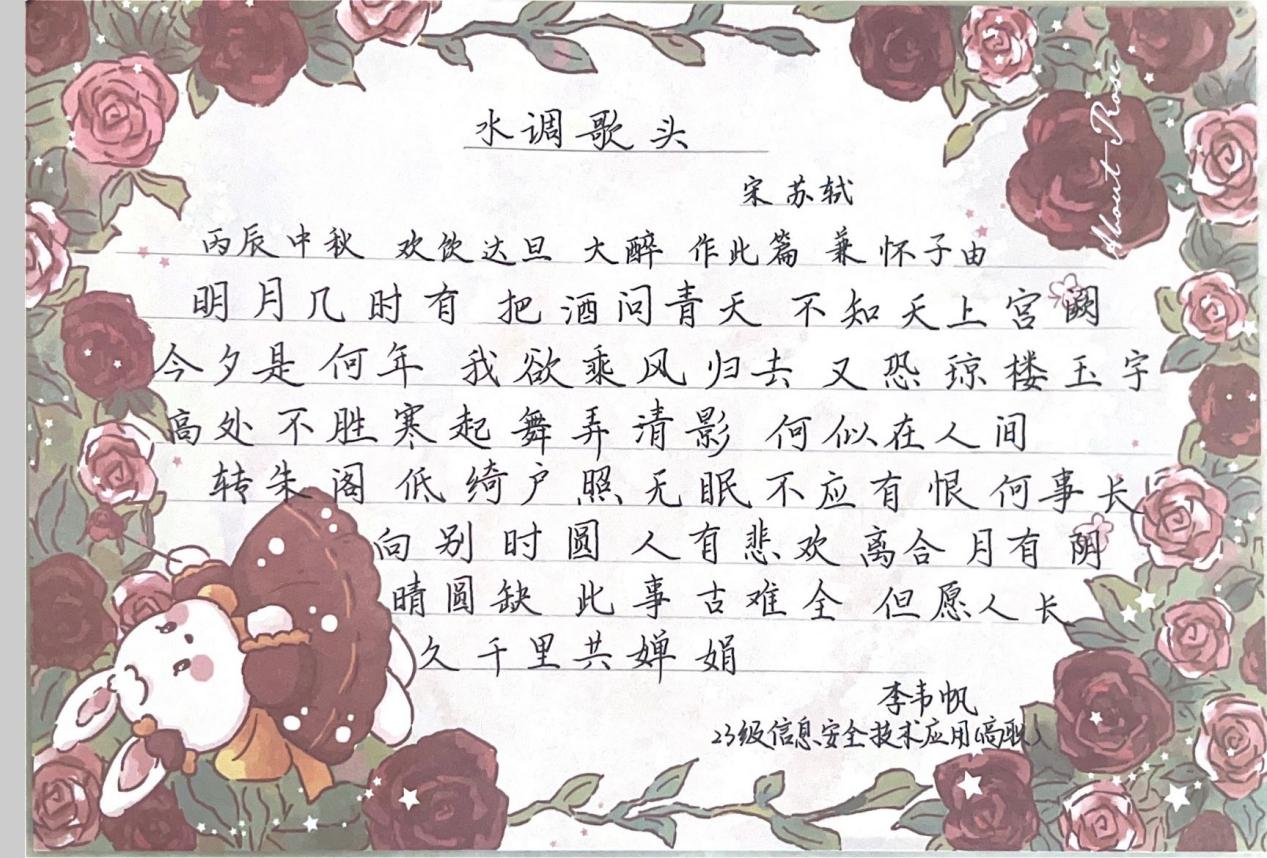 水调歌头
宋 苏轼
丙辰中秋 欢饮达旦 大醉 作此篇 兼怀子由
明月几时有 把酒问青天 不知天上宫阙
今夕是何年 我欲乘风归去 又恐琼楼玉宇
高处不胜寒 起舞弄清影 何似在人间
转朱阁 低绮户 照无眠 不应有恨 何事长
向别时圆 人有悲欢离合 月有阴
晴圆缺 此事古难全 但愿人长
久 千里共婵娟
李韦帆
23级信息安全技术应用(高职)
About Rose